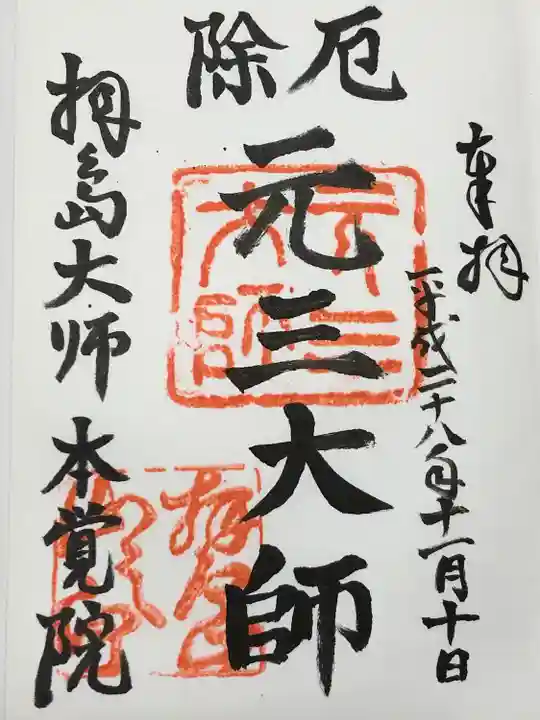 奉拝
平成二十八年十一月十日
厄除
元三大師
元三大師
拝島大师
本覚院